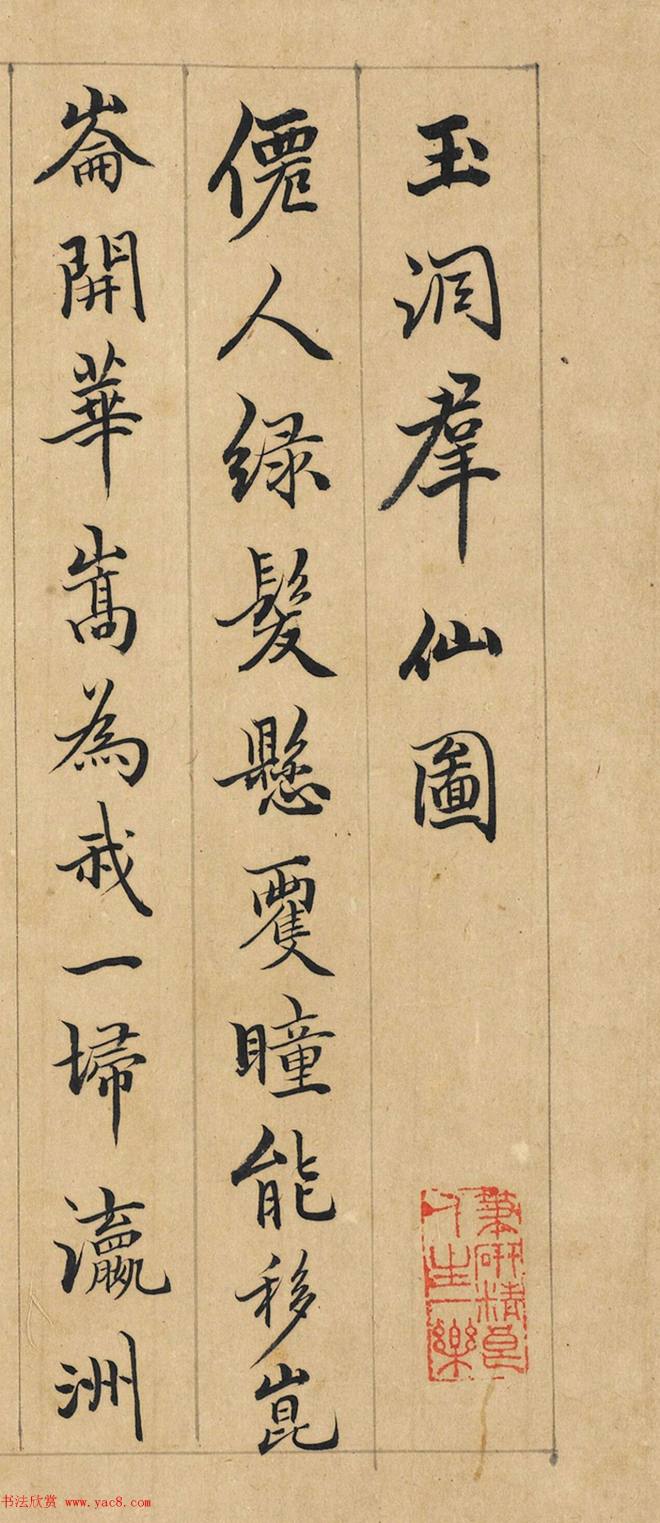 玉洞羣仙圖
僊人綠髮懸矍瞳能移崑
崙開華嵩為我一掃瀛洲
筆研精良
人生一樂
书法欣赏 www.yac8.com